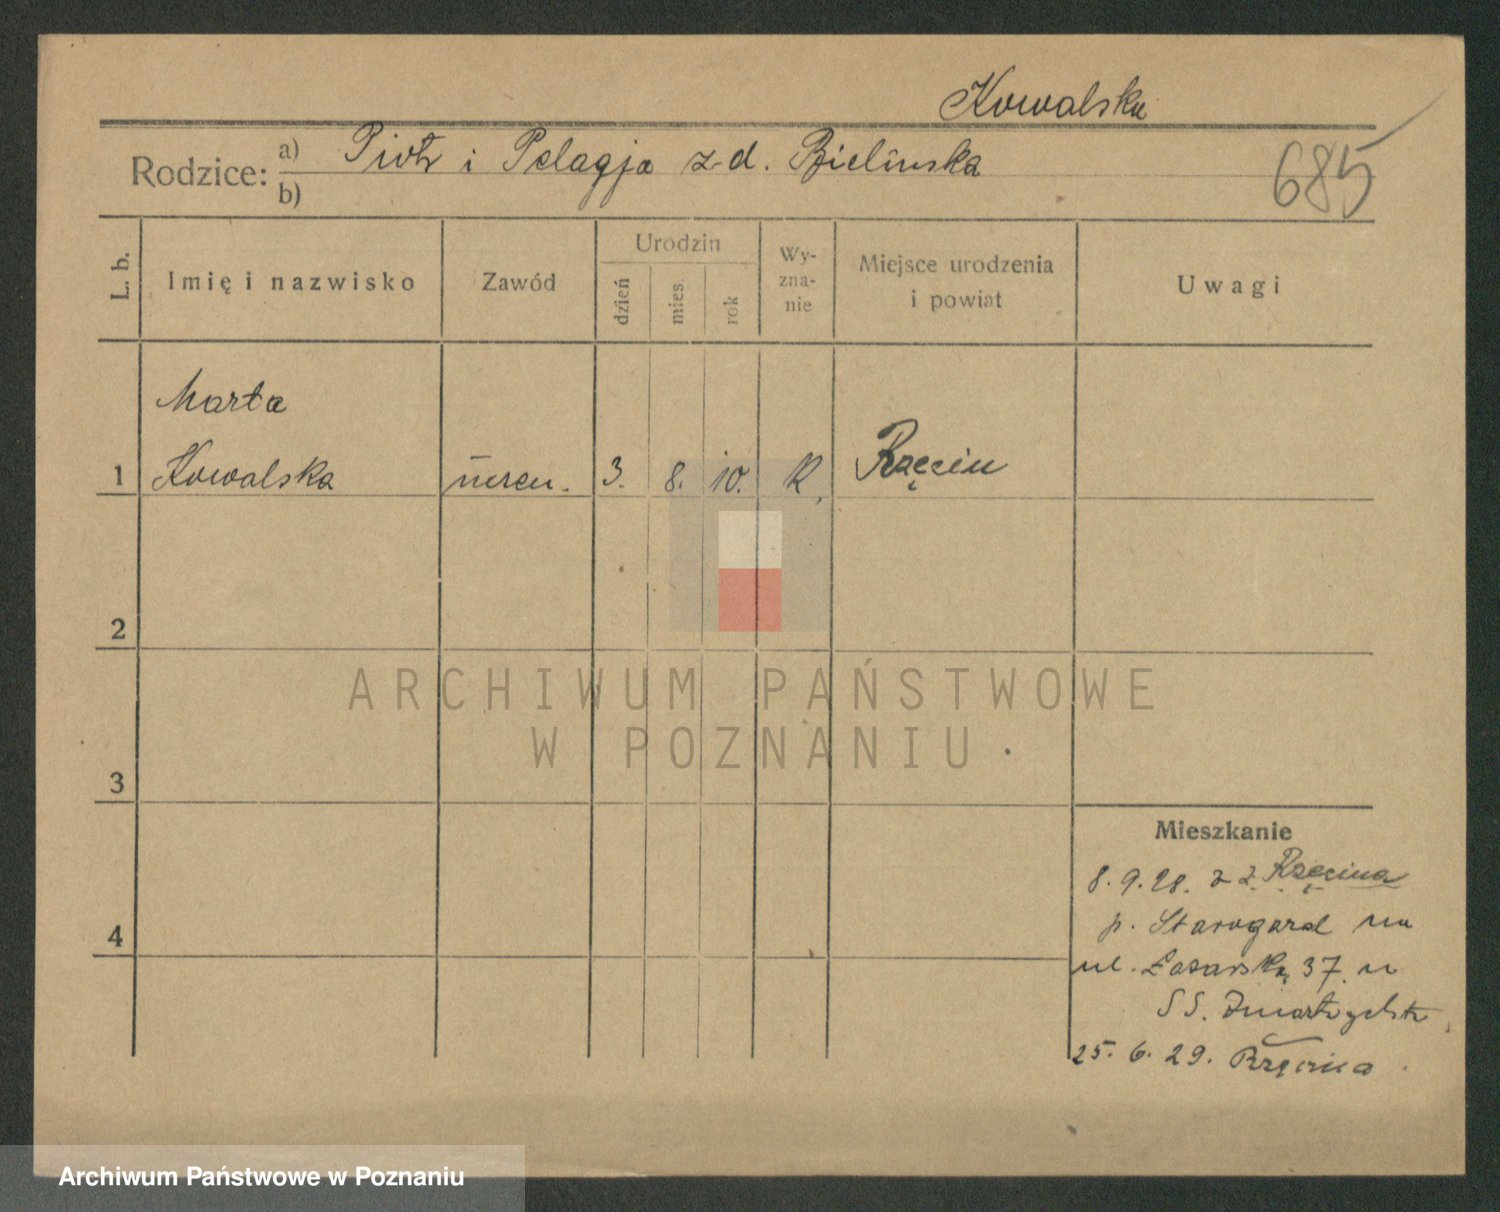 Kowalska
Rodzice: a) Piotr i Pelagja z d. Bielinska
b)
685
L. b. Imię i nazwisko Zawód Urodzin dzień mies. rok Wy-zna-nie Miejsce urodzenia i powiat Uwagi
Marta
1 Kowalska uczen. 3. 8. 10. k. Rzęcin
2
3
4
Mieszkanie
8.9.28. z Rzęcina
p. Starogard na
ul. Łazarską 37. u
S S. Zmartwychst.
25. 6. 29. Rzęcina
ARCHIWUM PAŃSTWOWE
W POZNANIU
Archiwum Państwowe w Poznaniu